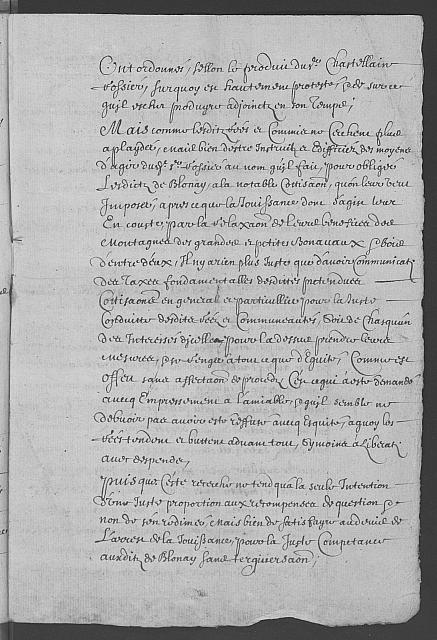 Ont ordonnés, sellon le produit du sr. Chastellain
Dossier, surquoy en hautement protesté, & de sur ce
quil escher produyre adjoinctz en son Temps;
Mais comme lesdits et Commis ne Cerchent plus
a plaider, mais bien d'estre Instruit et Ediffier des moyens
d'agir du sr. Dossier au nom quil fait, pour obliger
Lesdictz de Blonay, a la notable Cottisaon, quon leur veut
Imposer, apres que la Jouissance dont sagit leur
En couste, par la Relaxaon de leurs benefices des
Montagnes des grandes et petites Bonavaux & bois
d'entre deux, Il ny a rien plus Juste que d'avoir communicatn
des Taxes fondamentalles desdites pretendues
Cottisaons en general et particullier pour la Juste
Conduitte desdits et Communeautés, Soit de Chasquun
des Interessés dicelles, pour la dessus prendre leurs
mesures, & se renger a tout ce que d'Equité, Comme est
offert sans affectaon de procedz. Ce qui a esté demandé
avecq Empressement a l'amiable, & quil semble ne
debvoir pas avoir esté reffusé avecq Esquité, a quoy les
tendent et buttent advant tout, Sy moins a Liberatn
avec despends,
Puis que Ceste recerche ne tend qua la seule Intention
d'une Juste proportion aux recompenses de question &
non de sen redimer, Mais bien de satisfayre au deub de
Larren de la Jouissance, pour la Juste Competance
auxdits de Blonay sans tergiversaon;